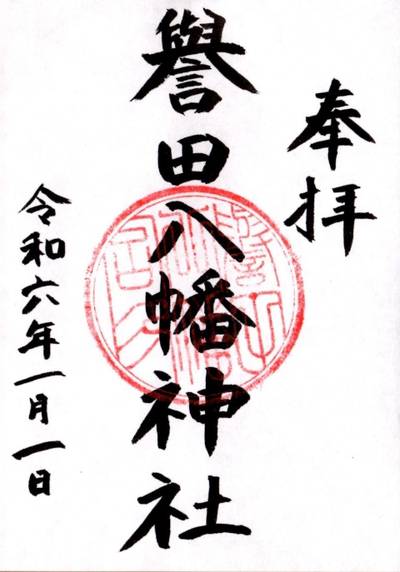 奉拝
譽田八幡神社
令和六年一月一日